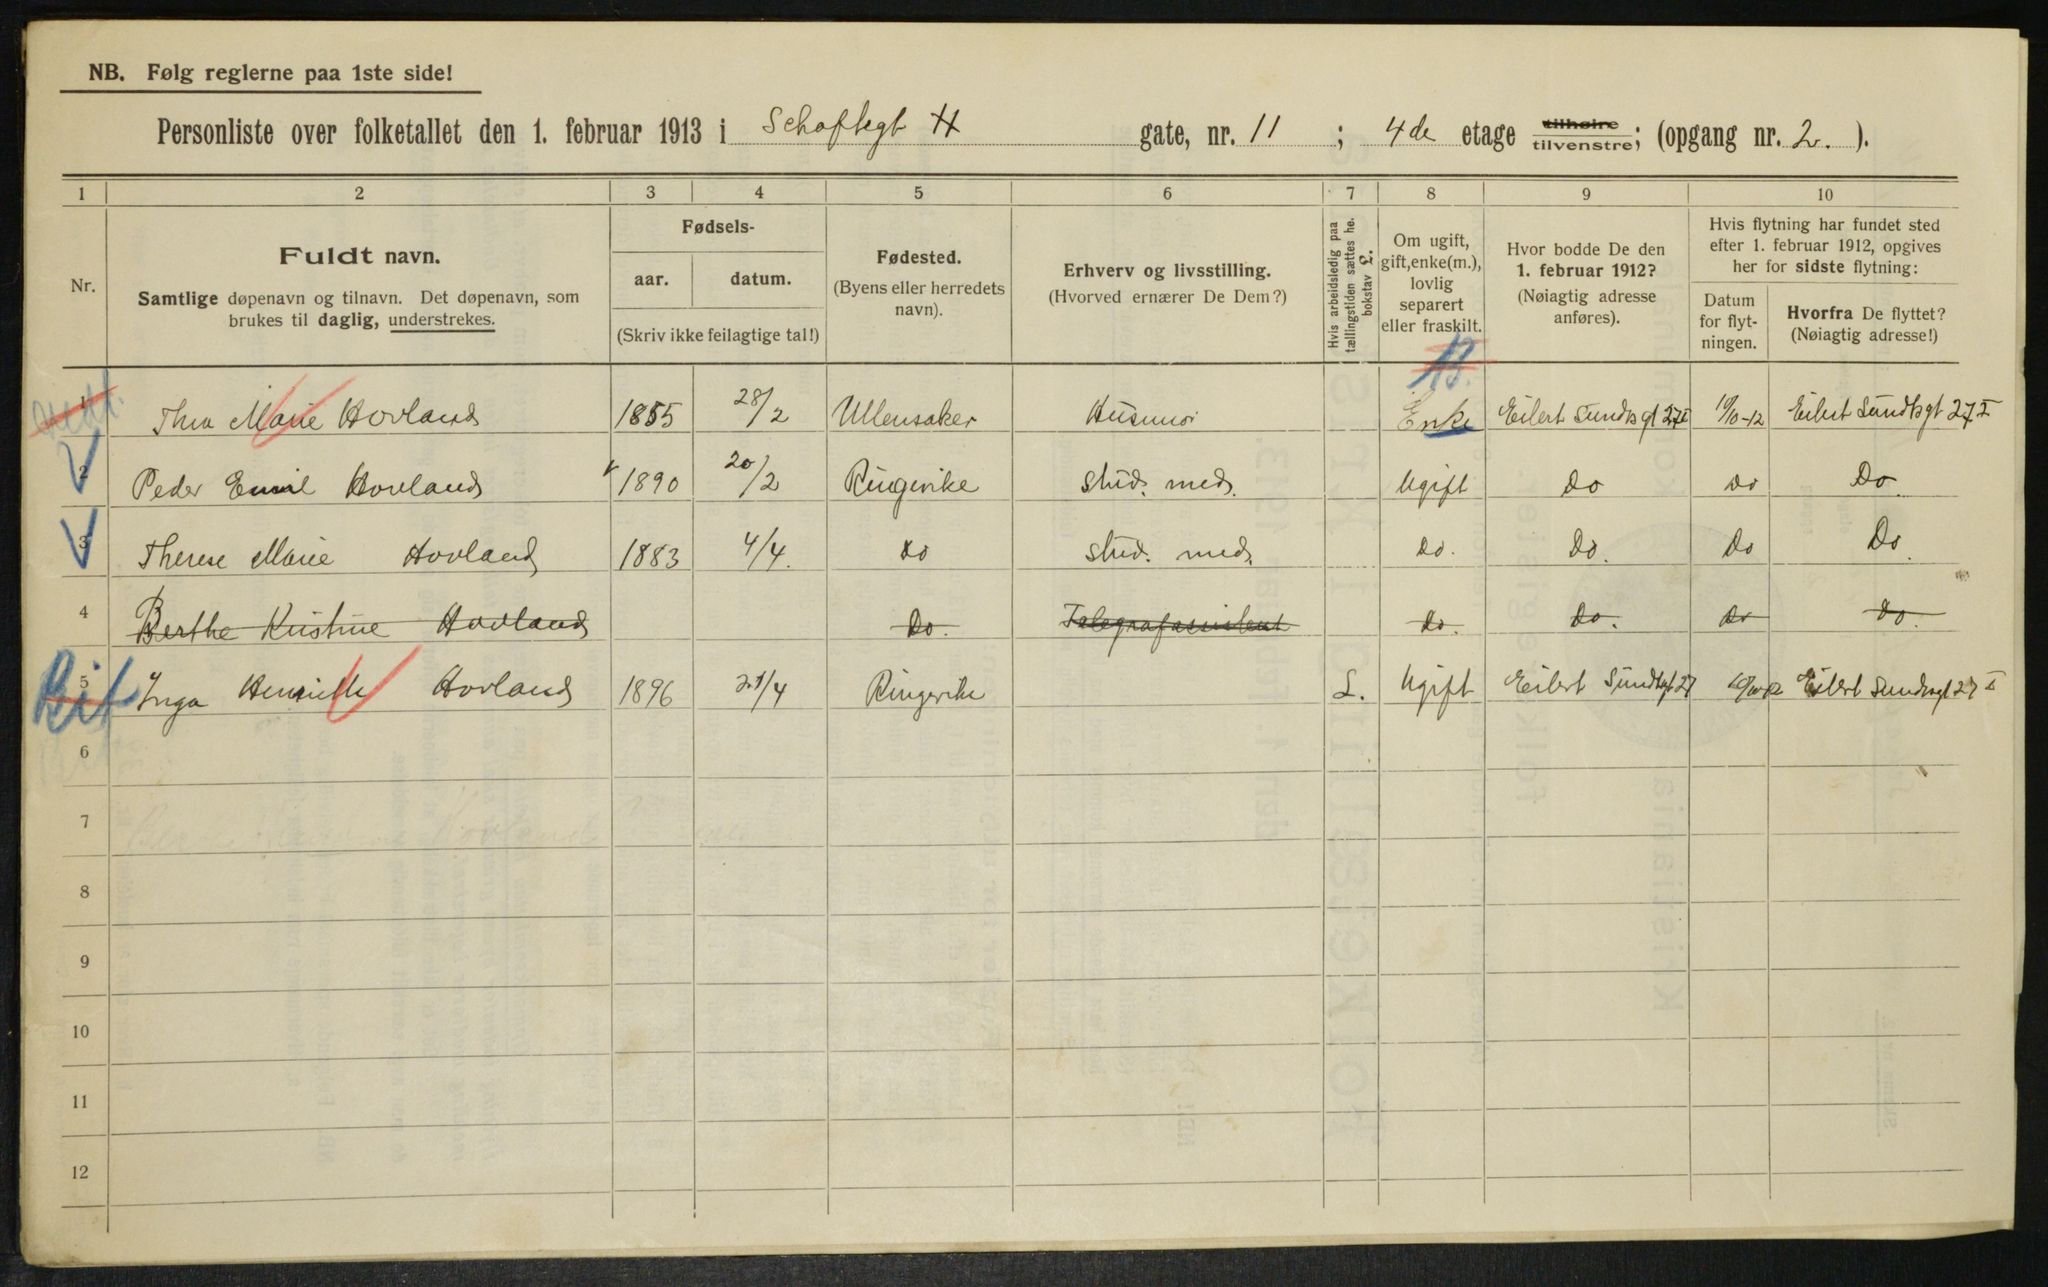 NB. Følg reglerne paa 1ste side!
Personliste over folketallet den 1. februar 1913 i Schaftegt H gate, nr. 11 ; 4de etage tilhøire tilvenstre; (opgang nr. 2. ).
1 2 3 4 5 6 7 8 9 10
Nr.
Fuldt navn.
Samtlige døpenavn og tilnavn. Det døpenavn, som
brukes til daglig, understrekes.
Fødsels-
aar. datum.
(Skriv ikke feilagtige tal!)
Fødested.
(Byens eller herredets
navn).
Erhverv og livsstilling.
(Hvorved ernærer De Dem?)
Hvis arbeidsledig paa
tællingstiden sættes he.
bokstav L.
Om ugift,
gift, enke(m.),
lovlig
separert
eller fraskilt.
Hvor bodde De den
1. februar 1912?
(Nøiagtig adresse
anføres).
Hvis flytning har fundet sted
efter 1. februar 1912, opgives
her for sidste flytning:
Datum
for flyt-
ningen.
Hvorfra De flyttet?
(Nøiagtig adresse!)
1 Thea Marie Hovland 1855 28/2 Ullensaker Husmor Enke Eilert Sundts gt 27 I 10/10-12 Eilert Sundtsgt 27 I
2 Peder Emil Hovland 1890 20/2 Ringerike stud. med. Ugift Do Do Do
3 Therese Marie Hovland 1883 4/4. Do stud. med. Do. Do. Do Do
4 Berthe Kristine Hovland Do. Telegrafassistent Do. Do. Do Do.
5 Inga Henriette Hovland 1896 21/4 Ringerike L. Ugift Eilert Sundtsgt 27 10/10-12 Eilert Sundtsgt 27 I
6
7
8
9
10
11
12